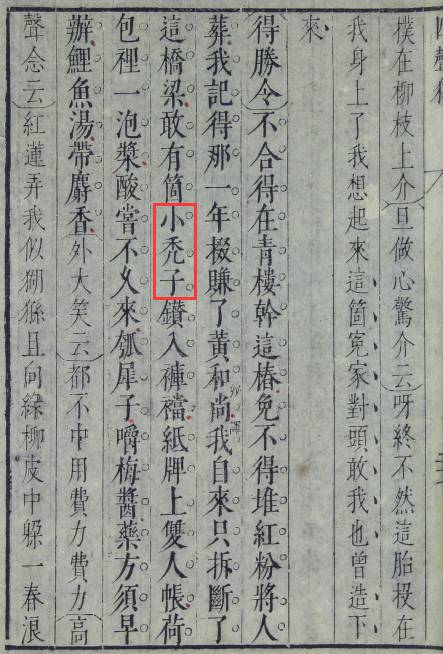 撲在柳枝上介（旦做心驚介（云）呀終不然這胎投在
我身上了我想起來這箇冤家對頭敢我也曾造下
來
得勝令）不合得在青樓幹這樁免不得堆紅粉將人
葬我記得那一年掇賺了黃和尚我自來只拆斷了
這橋梁敢有箇小禿子鑚入褲襠紙牌上雙人帳荷
包裡一泡漿酸嘗不久來瓠犀子嚼梅醬藥方須早
辦鯉魚湯帶麝香（外大笑云）都不中用費力費力（高
聲念云）紅蓮弄我似猢猻且向綠柳皮中躲一春浪